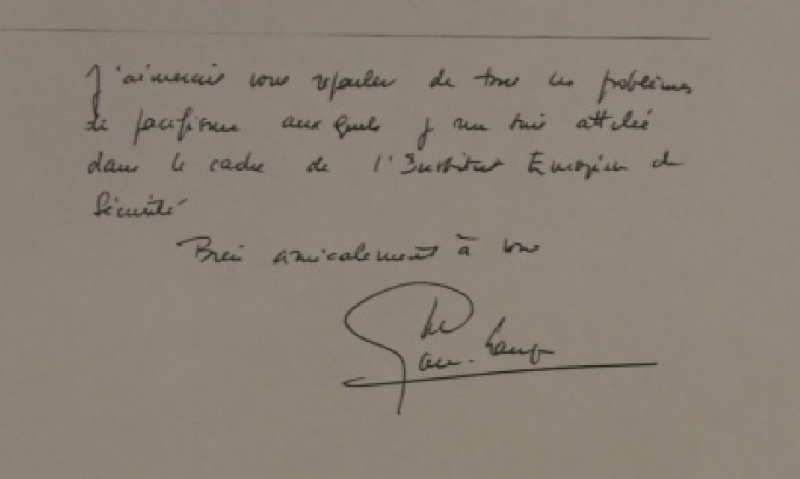 J'aimerais vous reparler de tous ces problèmes
de pacifisme auxquels je me suis attelé
dans le cadre de l'Institut Européen de
Sécurité
Bien amicalement à vous